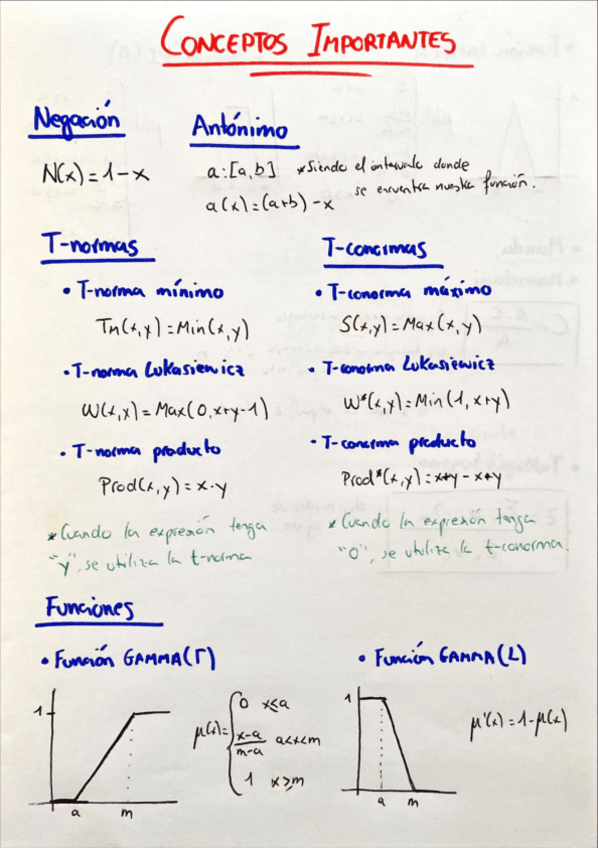 CONCEPTOS IMPORTANTES
Negación
N(x) = 1 - x
Antónimo
a: [a, b] *Siendo el intervalo donde
se encuentra nuestra función.
a(x) = (a+b) - x
T-normas
• T-norma mínimo
Tm(x,y) = Min(x,y)
• T-norma Lukasiewicz
W(x,y) = Max(0, x+y-1)
• T-norma producto
Prod(x,y) = x·y
*Cuando la expresión tenga
"y", se utiliza la t-norma
T-conormas
• T-conorma máximo
S(x,y) = Max(x,y)
• T-conorma Lukasiewicz
W*(x,y) = Min(1, x+y)
• T-conorma producto
Prod*(x,y) = x+y - x+y
*Cuando la expresión tenga
"O", se utiliza la t-conorma.
Funciones
• Función GAMMA(Γ)
1
a
m
μ(x) =
0 x≤a
x-a
m-a
a<x<m
1 x≥m
• Función GAMMA(L)
1
a
m
μ'(x) = 1 - μ(x)